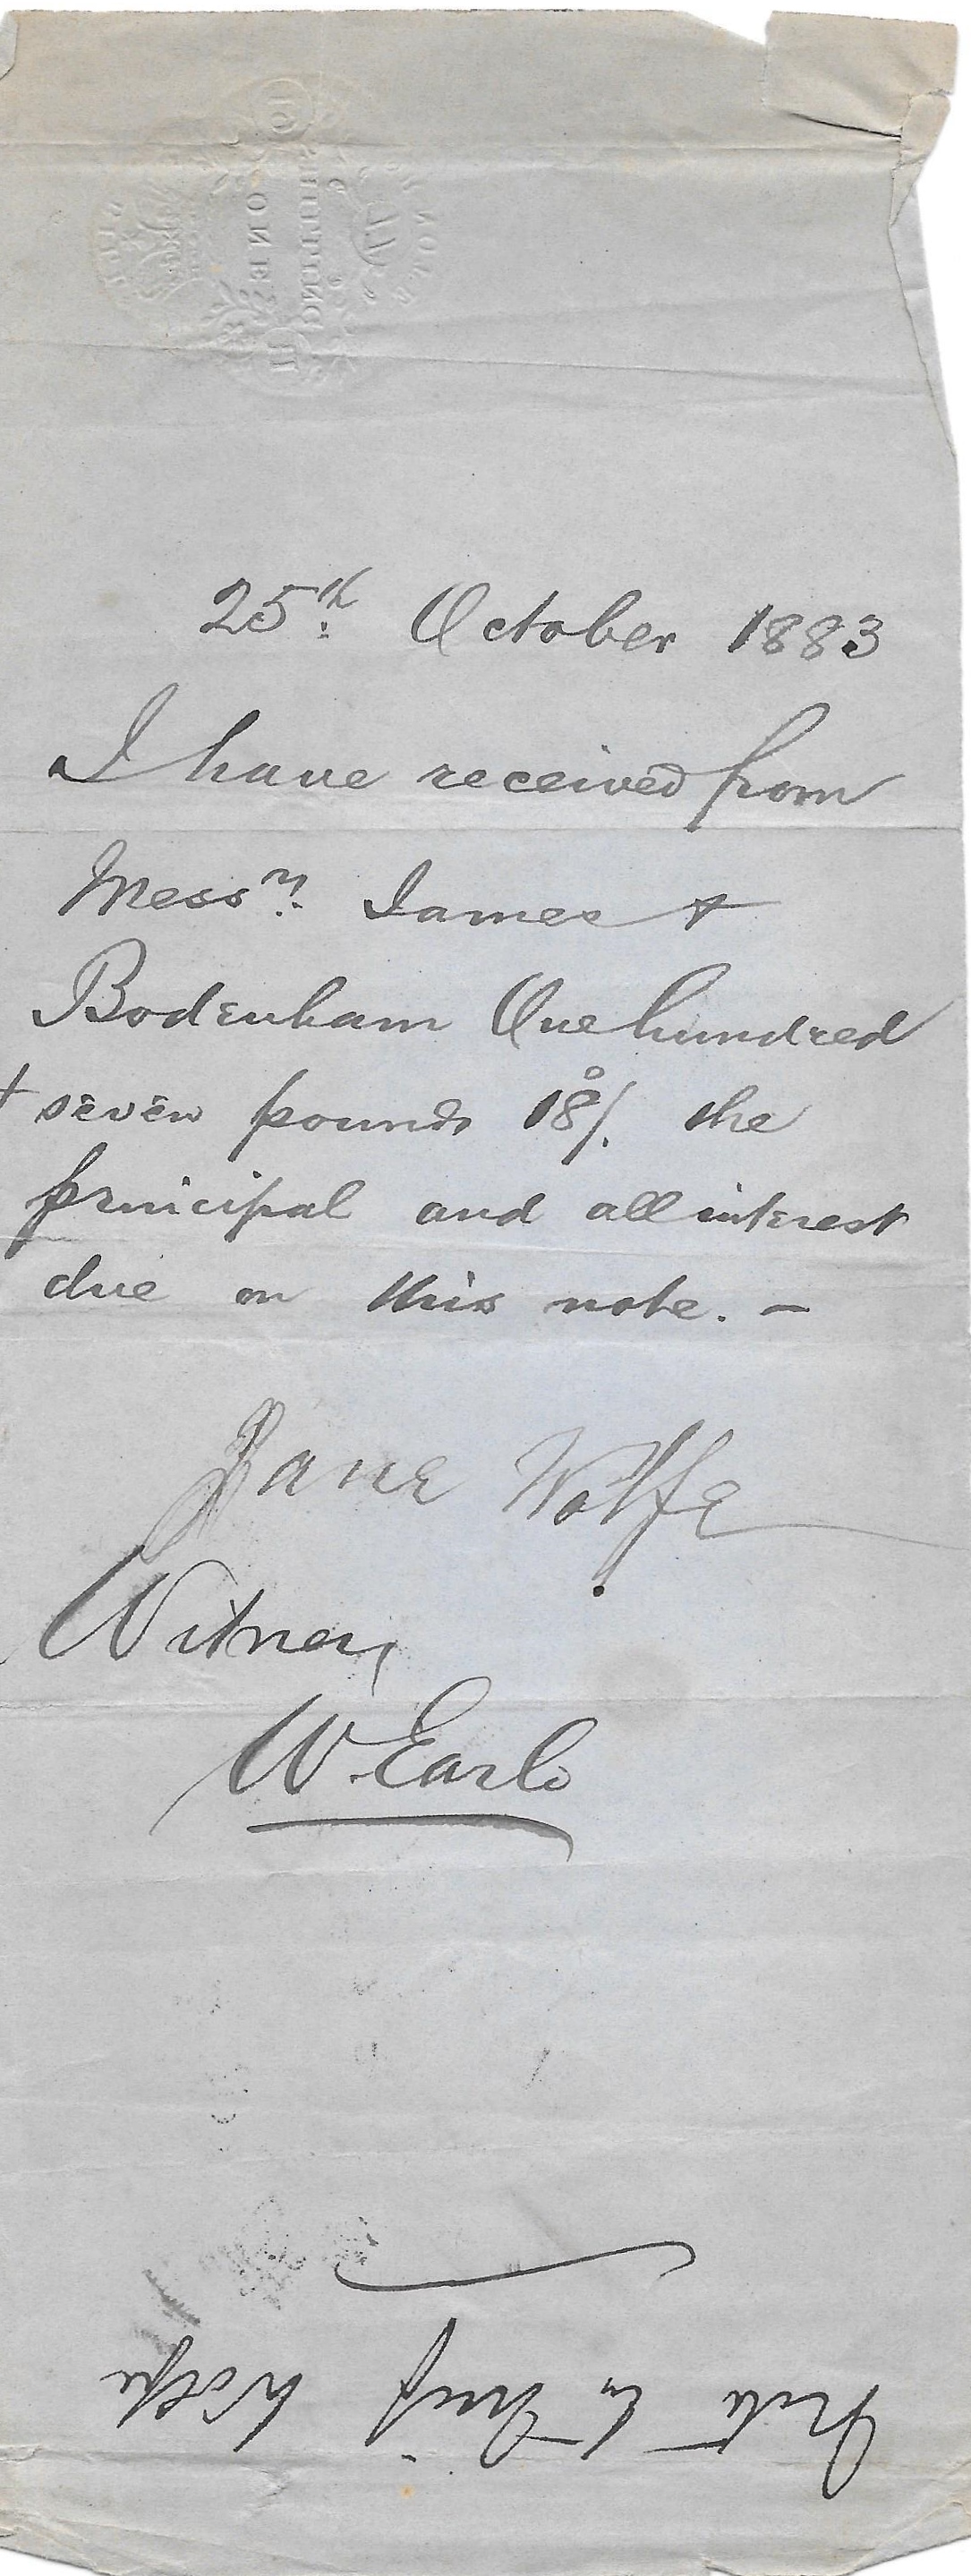 ONE
SHILLING
25th October 1883
I have received from
Messrs James +
Bodenham One hundred
+ seven pounds 18/. the
principal and all interest
due on this note. —
Jane Wolfe
Witness,
W. Earle
Note to Miss Wolfe